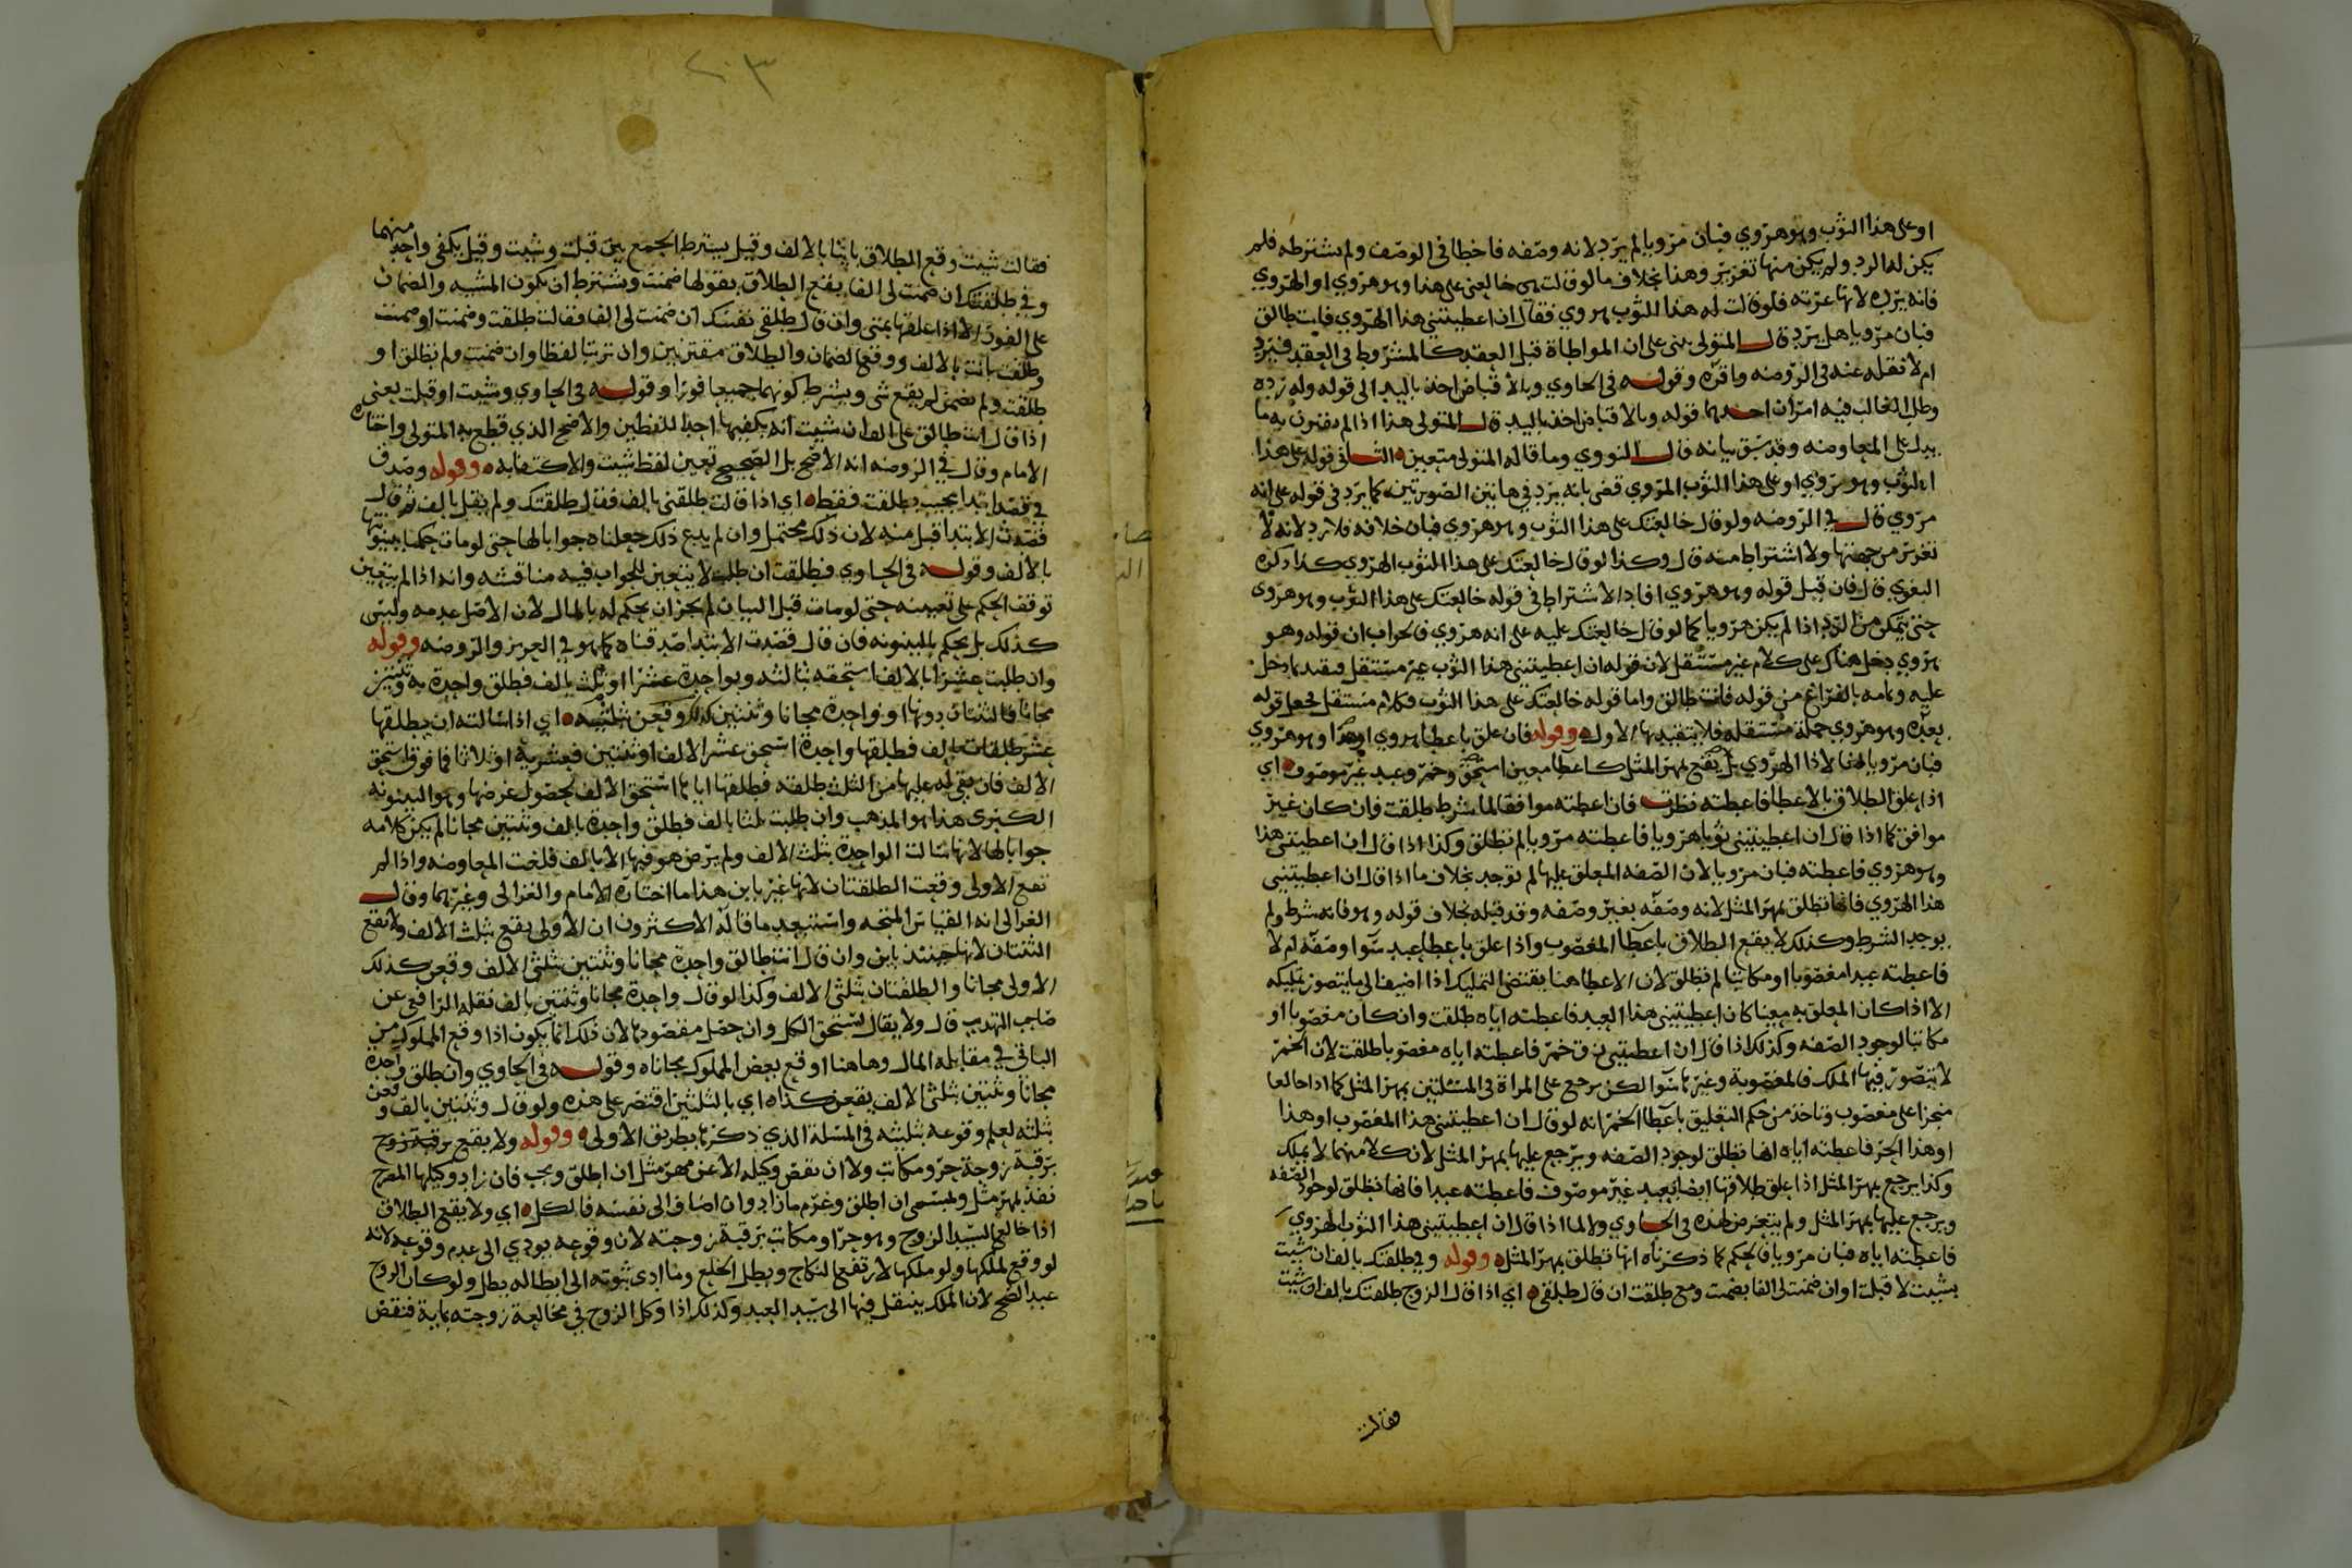 او على هذا الثوب وهو هروي فبان مرويا لم يرد لانه وصفه فاخطا في الوصف ولم يشترطه فلم
يكن له الرد ولم يكن منها تغرير وهذا بخلاف ما لو قالت هي خالعني على هذا وهو هروي او الهروي
فانه يرده لانها غرته فلو قالت له هذا الثوب هروي فقال ان اعطيتني هذا الهروي فانت طالق
فبان مرويا هل يرد قال المتولى يبنى على ان المواطاة قبل العقد كالمشروط في العقد فيرد
ام لا نقله عنه في الروضه واقره وقوله في الحاوي وبالاقباض اخذ باليد الى قوله وله رده
وطل الخالب فيه امران احدهما قوله وبالاقباض اخذ باليد قال المتولى هذا اذا لم يقترن به ما
يدل على المعاوضه وقد سبق بيانه قال النووي وما قاله المتولى متعين الثاني قوله على هذا
الثوب وهو مروي او على هذا الثوب المروي قضى بانه يرد في هاتين الصورتين كما يرد في قوله على انه
مروي قال في الروضه ولو قال خالعتك على هذا الثوب وهو هروي فبان خلافه فلا رد لانه لا
تغرير من جهتها ولا اشتراط منه قال وكذا لو قال خالعتك على هذا الثوب الهروي كذا ذكره
البغوي قال فان قيل قوله وهو هروي افاد الاشتراط في قوله خالعتك على هذا الثوب وهو هروي
حتى يتمكن من الرد اذا لم يكن هرويا كما لو قال خالعتك عليه على انه هروي فالجواب ان قوله وهو
هروي دخل هناك على كلام غير مستقل لان قوله ان اعطيتني هذا الثوب غير مستقل فيقيد بما دخل
عليه وتمامه بالفراغ من قوله فانت طالق واما قوله خالعتك على هذا الثوب فكلام مستقل لجعل قوله
بعده وهو هروي جملة مستقله فلا تتقيد بها الاوله وقوله فان علق باعطا هروي او هذا وهو هروي
فبان مرويا لغا لا ذا الهروي بل يقع بمهر المثل كاعطا معين استحق وخمر وعبد غير موصوف اي
اذا علق الطلاق بالاعطا فاعطته نظرت فان اعطته موافقا لما شرط طلقت وان كان غير
موافق كما اذا قال ان اعطيتني ثوبا هرويا فاعطته مرويا لم تطلق وكذا اذا قال ان اعطيتني هذا
وهو هروي فاعطته فبان مرويا لان الصفه المعلق عليها لم توجد بخلاف ما اذا قال ان اعطيتني
هذا الهروي فانها تطلق بمهر المثل لانه وصفه بغير وصفه وقد قبله بخلاف قوله وهو فانه شرط ولم
يوجد الشرط وكذلك لا يقع الطلاق باعطا المغصوب واذا علق باعطا عبد سوا وصفه ام لا
فاعطته عبدا مغصوبا او مكاتبا لم تطلق لان الاعطا هنا يقتضي التمليك اذا اضيف الى ما يتصور تمليكه
الا اذا كان المعلق به معينا كان اعطيتني هذا العبد فاعطته اياه طلقت وان كان مغصوبا او
مكاتبا لوجود الصفه وكذلك اذا قال ان اعطيتني زق خمر فاعطته اياه مغصوبا طلقت لان الخمر
لا يتصور فيها الملك فالمغصوبة وغيرها سوا لكن يرجع على المراة في المسئلتين بمهر المثل كما اذا خالعا
منجزا على مغصوب وتاخذ من حكم التعليق باعطا الخمر انه لو قال ان اعطيتني هذا المغصوب او هذا
او هذا الحر فاعطته اياه انها تطلق لوجود الصفه ويرجع عليها بمهر المثل لان كلا منهما لا يملك
وكذا يرجع بمهر المثل اذا علق طلاقها ايضا بعبد غير موصوف فاعطته عبدا فانها تطلق لوجود الصفه
ويرجع عليها بمهر المثل ولم يتعرض لهذه في الحاوي ولا لما اذا قال ان اعطيتني هذا الثوب الهروي
فاعطته اياه فبان مرويا فالحكم كما ذكرناه انها تطلق بمهر المثل وقوله وفي طلقتك بالف ان شيت
بشيت لا قبلت او ان ضمنت لي الفا بضمنت ومع طلقت ان قال طلقي اي اذا قال الزوج طلقتك بالف ان شيت
فقالت
٢٠٣
فقالت شيت وقع الطلاق باينا بالالف وقيل يشترط الجمع بين قبلت وشيت وقيل يكفي واحد منهما
وفي طلقتك ان ضمنت لي الفا يقع الطلاق بقولها ضمنت ويشترط ان يكون المشيه والضمان
على الفور الا اذا علقها بمتى وان قال طلقي نفسك ان ضمنت لي الفا فقالت طلقت وضمنت او ضمنت
وطلقت بانت بالالف ووقع الضمان والطلاق مقترنين وان ترتبا لفظا وان ضمنت ولم تطلق او
طلقت ولم تضمن لم يقع شي ويشترط كونهما جميعا فورا وقوله في الحاوي وشيت او قبلت يعني
اذا قال انت طالق على الف ان شيت انه يكفيها احد اللفظين والاصح الذي قطع به المتولى واختاره
الامام وقال في الروضه انه الاصح بل الصحيح تعين لفظ شيت والاكتفا به وقوله وصدق
في قصد ابتدا بجيب بطلقت فقط اي اذا قالت طلقني بالف فقال طلقتك ولم يقل بالف ثم قال
قصدت الابتدا قبل منه لان ذلك محتمل وان لم يدع ذلك جعلناه جوابا لها حتى لو مات حكمنا ببينونتها
بالالف وقوله في الحاوي فطلقت ان طلب لا يتعين للجواب فيه مناقشه وانه اذا لم يتعين
توقف الحكم على تعيينه حتى لو مات قبل البيان لم يجز ان يحكم له بالمال لان الاصل عدمه وليس
كذلك بل يحكم بالبينونه فان قال قصدت الابتدا صدقناه كما هو في العزيز والروضه وقوله
وان طلبت عشرا بالالف استحقه بثالثه وبواحدة عشرا او ثلث بالف فطلق واحدة به وثنتين
مجانا فالثنتان دونها او واحدة مجانا وثنتين كذلك وقعن بثلثيه اي اذا سالته ان يطلقها
عشر طلقات بالف فطلقها واحدة استحق عشر الالف او ثنتين فعشريه او ثلاثا فما فوق استحق
الالف فان بقي له عليها من الثلث طلقه فطلقها اياها استحق الالف لحصول غرضها وهو البينونه
الكبرى هذا هو المذهب وان طلبت ثلثا بالف فطلق واحدة بالف وثنتين مجانا لم يكن كلامه
جوابا لها لانها سالت الواحدة بثلث الالف ولم يرض هو فيها الا بالف فلغت المعاوضه واذا لم
تقع الاولى وقعت الطلقتان لانها غير باين هذا ما اختاره الامام والغزالى وغيرهما وقال
الغزالى انه القياس المتجه واستبعد ما قاله الاكثرون ان الاولى يقع بثلث الالف ولا تقع
الثنتان لانها حينئذ باين وان قال انت طالق واحدة مجانا وثنتين بثلثي الالف وقعن كذلك
الاولى مجانا والطلقتان بثلثي الالف وكذا لو قال واحدة مجانا وثنتين بالف نقله الرافعي عن
صاحب التهذيب قال ولا يقال يستحق الكل وان حصل مقصودها لان ذلك انما يكون اذا وقع المملوك من
الباقي في مقابله المال وهاهنا اوقع بعض المملوك مجانا وقوله في الحاوي وان طلق واحدة
مجانا وثنتين بثلثي الالف يقعن كذا اي بالثلثين اقتصر على هذه ولو قال وثنتين بالف وقعن
بثلثه لعلم وقوعه بثلثيه في المسلة الذي ذكرها بطريق الاولى وقوله ولا يقع برقبة زوج
برقبة زوجة حر ومكاتب ولا ان نقص وكيله لا عن مهر مثل ان اطلق ويجب فان زاد وكيلها المفرح
نفذ بمهر مثل وبمسمى ان اطلق وغرم ما زاد وان اضاف الى نفسه فالكل اي ولا يقع الطلاق
اذا خالع السيد الزوج وهو حر او مكاتب برقبة زوجته لان وقوعه يودي الى عدم وقوعه لانه
لو وقع لملكها ولو ملكها لارتفع النكاح وبطل الخلع وما ادى ثبوته الى ابطاله بطل ولو كان الزوج
عبدا صح لان الملك ينتقل فيها الى سيد العبد وكذلك اذا وكل الزوج في مخالعة زوجته بماية فنقص